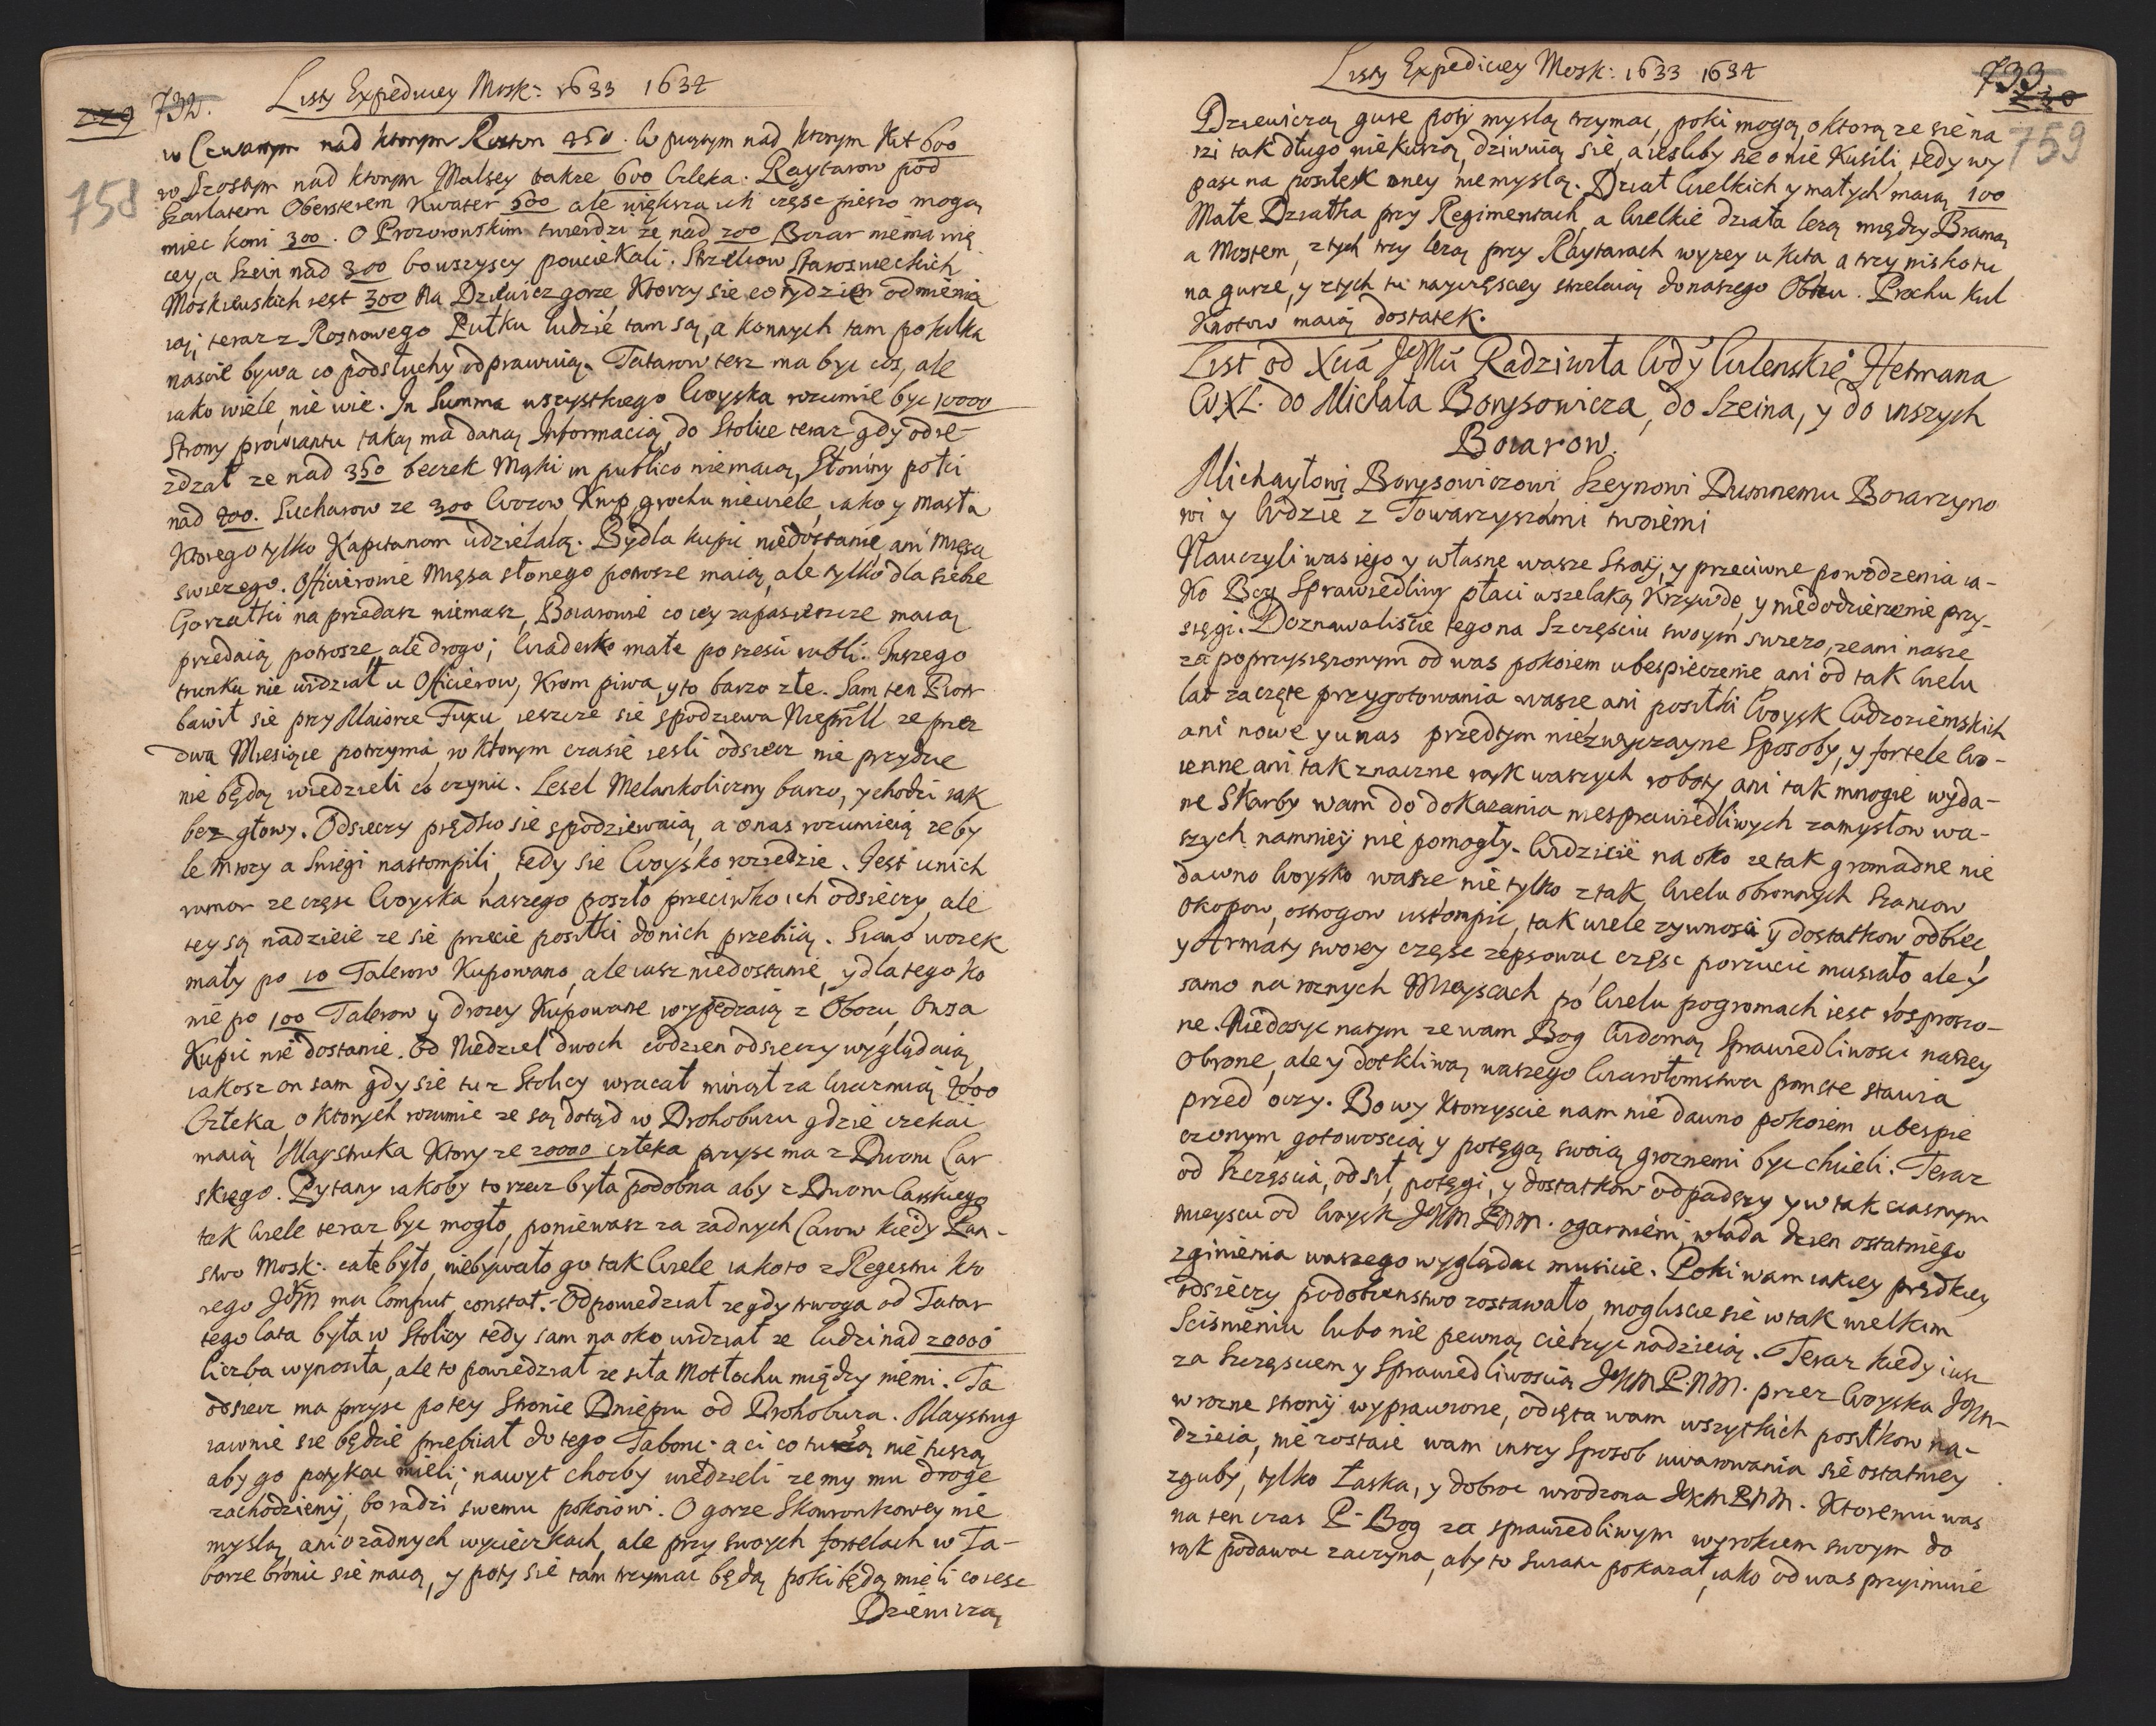 229 732. Listy Expedicyey Mosk: 1633 1634
758
w Czwartym nad ktorym Roston 350. W piątym nad ktorym Kit 600
w Szostym nad ktorym Matsey takze 600 Czleka. Raytarow pod
Szarlatem Obersterem Kwater 600 ale większa ich częsc pieszo mogą
miec koni 300. O Prozorowskim twierdzi ze nad 200 Boiar niema wię
cey, a Szein nad 300 bo wszyscy pouciekali. Strzelcow Staroswieckich
Moskiewskich iest 300 na Dziewicz gorze Ktorzy sie co tydzien odmienia
ią, teraz z Rosnowego Pułku ludzie tam są, a konnych tam po kilka
nascie bywa co podsłuchy odprawuią. Tatarow tesz ma byc cos, ale
iako wiele, nie wie. In Summa wszystkiego Woyska rozumie byc 10000
Strony prowiantu taką ma daną Informacią, do Stolice teraz gdy odie-
zdzał ze nad 350 beczek Mąki in publico niemaią, Słoniny połci
nad 200. Sucharow ze 300 Wozow, Krup, grochu niewiele, iako y masła
Ktorego tylko Kapitanom udzielaią. Bydła kupic niedostanie, ani mięsa
swiezego. Officierowie Mięsa słonego potrosze maią, ale tylko dla siebie
Gorzałki na przedasz niemasz, Boiarowie co iey zapas ieszcze maią
przedaią potrosze, ale drogo; Wiaderko małe po szesci rubli. Inszego
trunku nie widział u Officierow, Krom piwa, y to barzo złe. Sam ten Piotr
bawił sie przy Maiorze Fuxu ieszcze sie spodziewa Nieprill ze przez
dwa Miesiące potrzyma, w ktorym czasie iesli odsiecz nie przydzie
nie będą wiedzieli co czynic. Lesel Melankoliczny barzo, y chodzi iak
bez głowy. Odsieczy prędko sie spodziewaią, a o nas rozumieią zeby
le mrozy a Sniegi nastompili, tedy sie Woysko roziedzie. Jest u nich
rumor ze częsc Woyska naszego poszło przeciwko ich odsieczy, ale
tey są nadzieie ze sie przecie posiłki do nich przebiią. Siano worek
mały po 10 Talerow Kupowano, ale iusz niedostanie, y dla tego ko
nie po 100 Talerow y drozey Kupowane wypędzaią z Obozu, Owsa
Kupic nie dostanie. Od Niedziel dwoch codzien odsieczy wyglądaią
iakosz on sam gdy sie tu z Stolicy wracał minął za Wiazmią 7000
Człeka, o Ktorych rozumie ze są dotąd w Drohobuzu gdzie czekac
maią Maystruka Ktory ze 20000 człeka przysc ma z Dworu Car
skiego. Pytany iakoby to rzecz była podobna aby z Dworu Carskiego
tak Wiele teraz byc mogło, poniewasz za zadnych Carow kiedy Pan-
stwo Mosk: całe było, niebywało go tak Wiele iako to z Regestru kto
rego JKM ma Comput, constat. Odpowiedział ze gdy trwoga od Tatar
tego lata była w Stolicy tedy sam na oko widział ze ludzi nad 20000
liczba wynosiła, ale to powiedział ze siła Motłochu między niemi. Ta
odsiecz ma przysc po tey Stronie Dniepru od Drohobuza. Maystrug
iawnie sie będzie przebiiał do tego Taboru: a ci co tu są nie tuszą
aby go potykac mieli; nawyt chocby wiedzieli ze my mu drogę
zachodziemy, bo radzi swemu pokoiowi. O gorze Skowronkowey nie
myslą, ani o zadnych wycieczkach, ale przy swoych fortelach w Ta-
borze bronic sie maią, y poty sie tam trzymac będą poki będą mieli co iesc
Dziewiczą
Listy Expedicyey Mosk: 1633 1634 733.
230
759
Dziewiczą gure poty myslą trzymac, poki mogą, o ktorą ze sie na
szi tak długo nie kuszą, dziwuią sie, a iesliby sie o nie Kusili, tedy wy
pasc na posiłek oney niemyslą. Dział Wielkich y małych maią 100
Małe Działka przy Regimentach, a Wielkie działa lezą między Bramą
a Mostem, z tych trzy lezą przy Raytarach wyzey u Kita, a trzy nisko tu
na gurze, y z tych tu nayczęsciey strzelaią do naszego Obozu. Prochu Kul
Knotow maią dostatek.
List od Xcia JeMci Radziwiła Wdy Wilenskie Hetmana
WXL. do Michała Borysowicza, do Szeina, y do inszych
Boiarow.
Michayłowi Borysowiczowi Szeynowi Dumnemu Boiarzyno
wi y Wdzie z Towarzyszami twoiemi
Nauczyli was iego y własne wasze Straty, y przeciwne powodzenia ia-
ko Bog Sprawiedliwy płaci wszelaką Krzywdę, y niedodzierzenie przy-
sięgi. Doznawaliscie tego na Szczęsciu swoym swiezo, ze ani nasze
za poprzysięzonym od was pokoiem ubespieczenie ani od tak Wielu
lat zaczęte przygotowania wasze ani posiłki Woysk Cudzoziemskich
ani nowe y u nas przedtym niezwyczayne Sposoby, y fortele Wo-
ienne ani tak znaczne rąk waszych roboty, ani tak mnogie wyda-
ne Skarby wam do dokazania niesprawiedliwych zamysłow wa-
szych namniey nie pomogły. Widzicie na oko ze tak gromadne nie
dawno Woysko wasze nie tylko z tak Wielu obronnych Szancow
Okopow, ostrogow ustompic, tak wiele zywnosci y dostatkow odbiec,
y Armaty swoiey częsc zepsowac częsc porzucic musiało ale y
samo na roznych Mieyscach po Wielu pogromach iest rosproszo-
ne. Niedosyc natym ze wam Bog Widomą Sprawiedliwosci naszey
Obronę, ale y dotkliwą waszego Wiarołomstwa pomstę stawia
przed oczy. Bo wy Ktorzyscie nam nie dawno pokoiem ubespie
czonym gotowoscią y potęgą swoią groznemi byc chcieli. Teraz
od Szczęscia, od sił, potęgi, y dostatkow odpadszy y w tak ciasnym
mieyscu od Woysk JKM PNM. ogarnieni, wlada dzien ostatniego
zginienia waszego wyglądac musicie. Poki wam iakiey prędkiey
odsieczy podobienstwo zostawało, mogliscie sie w tak wielkim
Scisnieniu lubo nie pewną cieszyc nadzieią. Teraz kiedy iusz
za Szczęsciem y Sprawiedliwoscią JKM P.NM. przez Woyska JKM-
w rozne strony wyprawione, odięta wam wszytkich posiłkow na-
dzieia, nie zostaie wam inszy Sposob uwarowania sie ostatniey
zguby, tylko Łaska, y dobroc wrodzona JKM PNM. Ktoremu was
na ten czas P. Bog za sprawiedliwym wyrokiem swoym do
rąk podawac zaczyna, aby to Swiatu pokazał, iako od was przyimuie